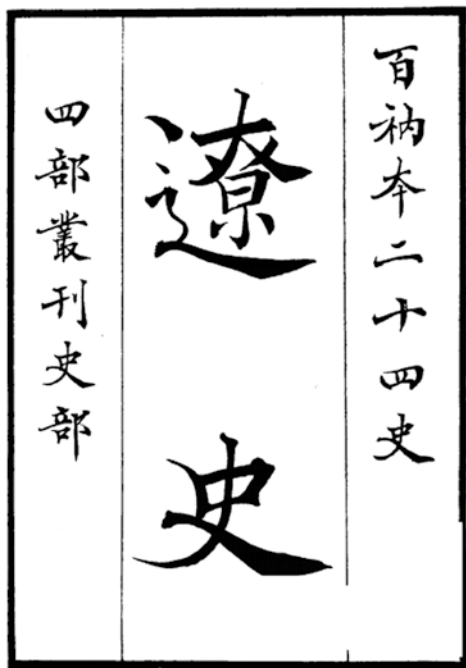 百衲本二十四史
遼史
四部叢刊史部